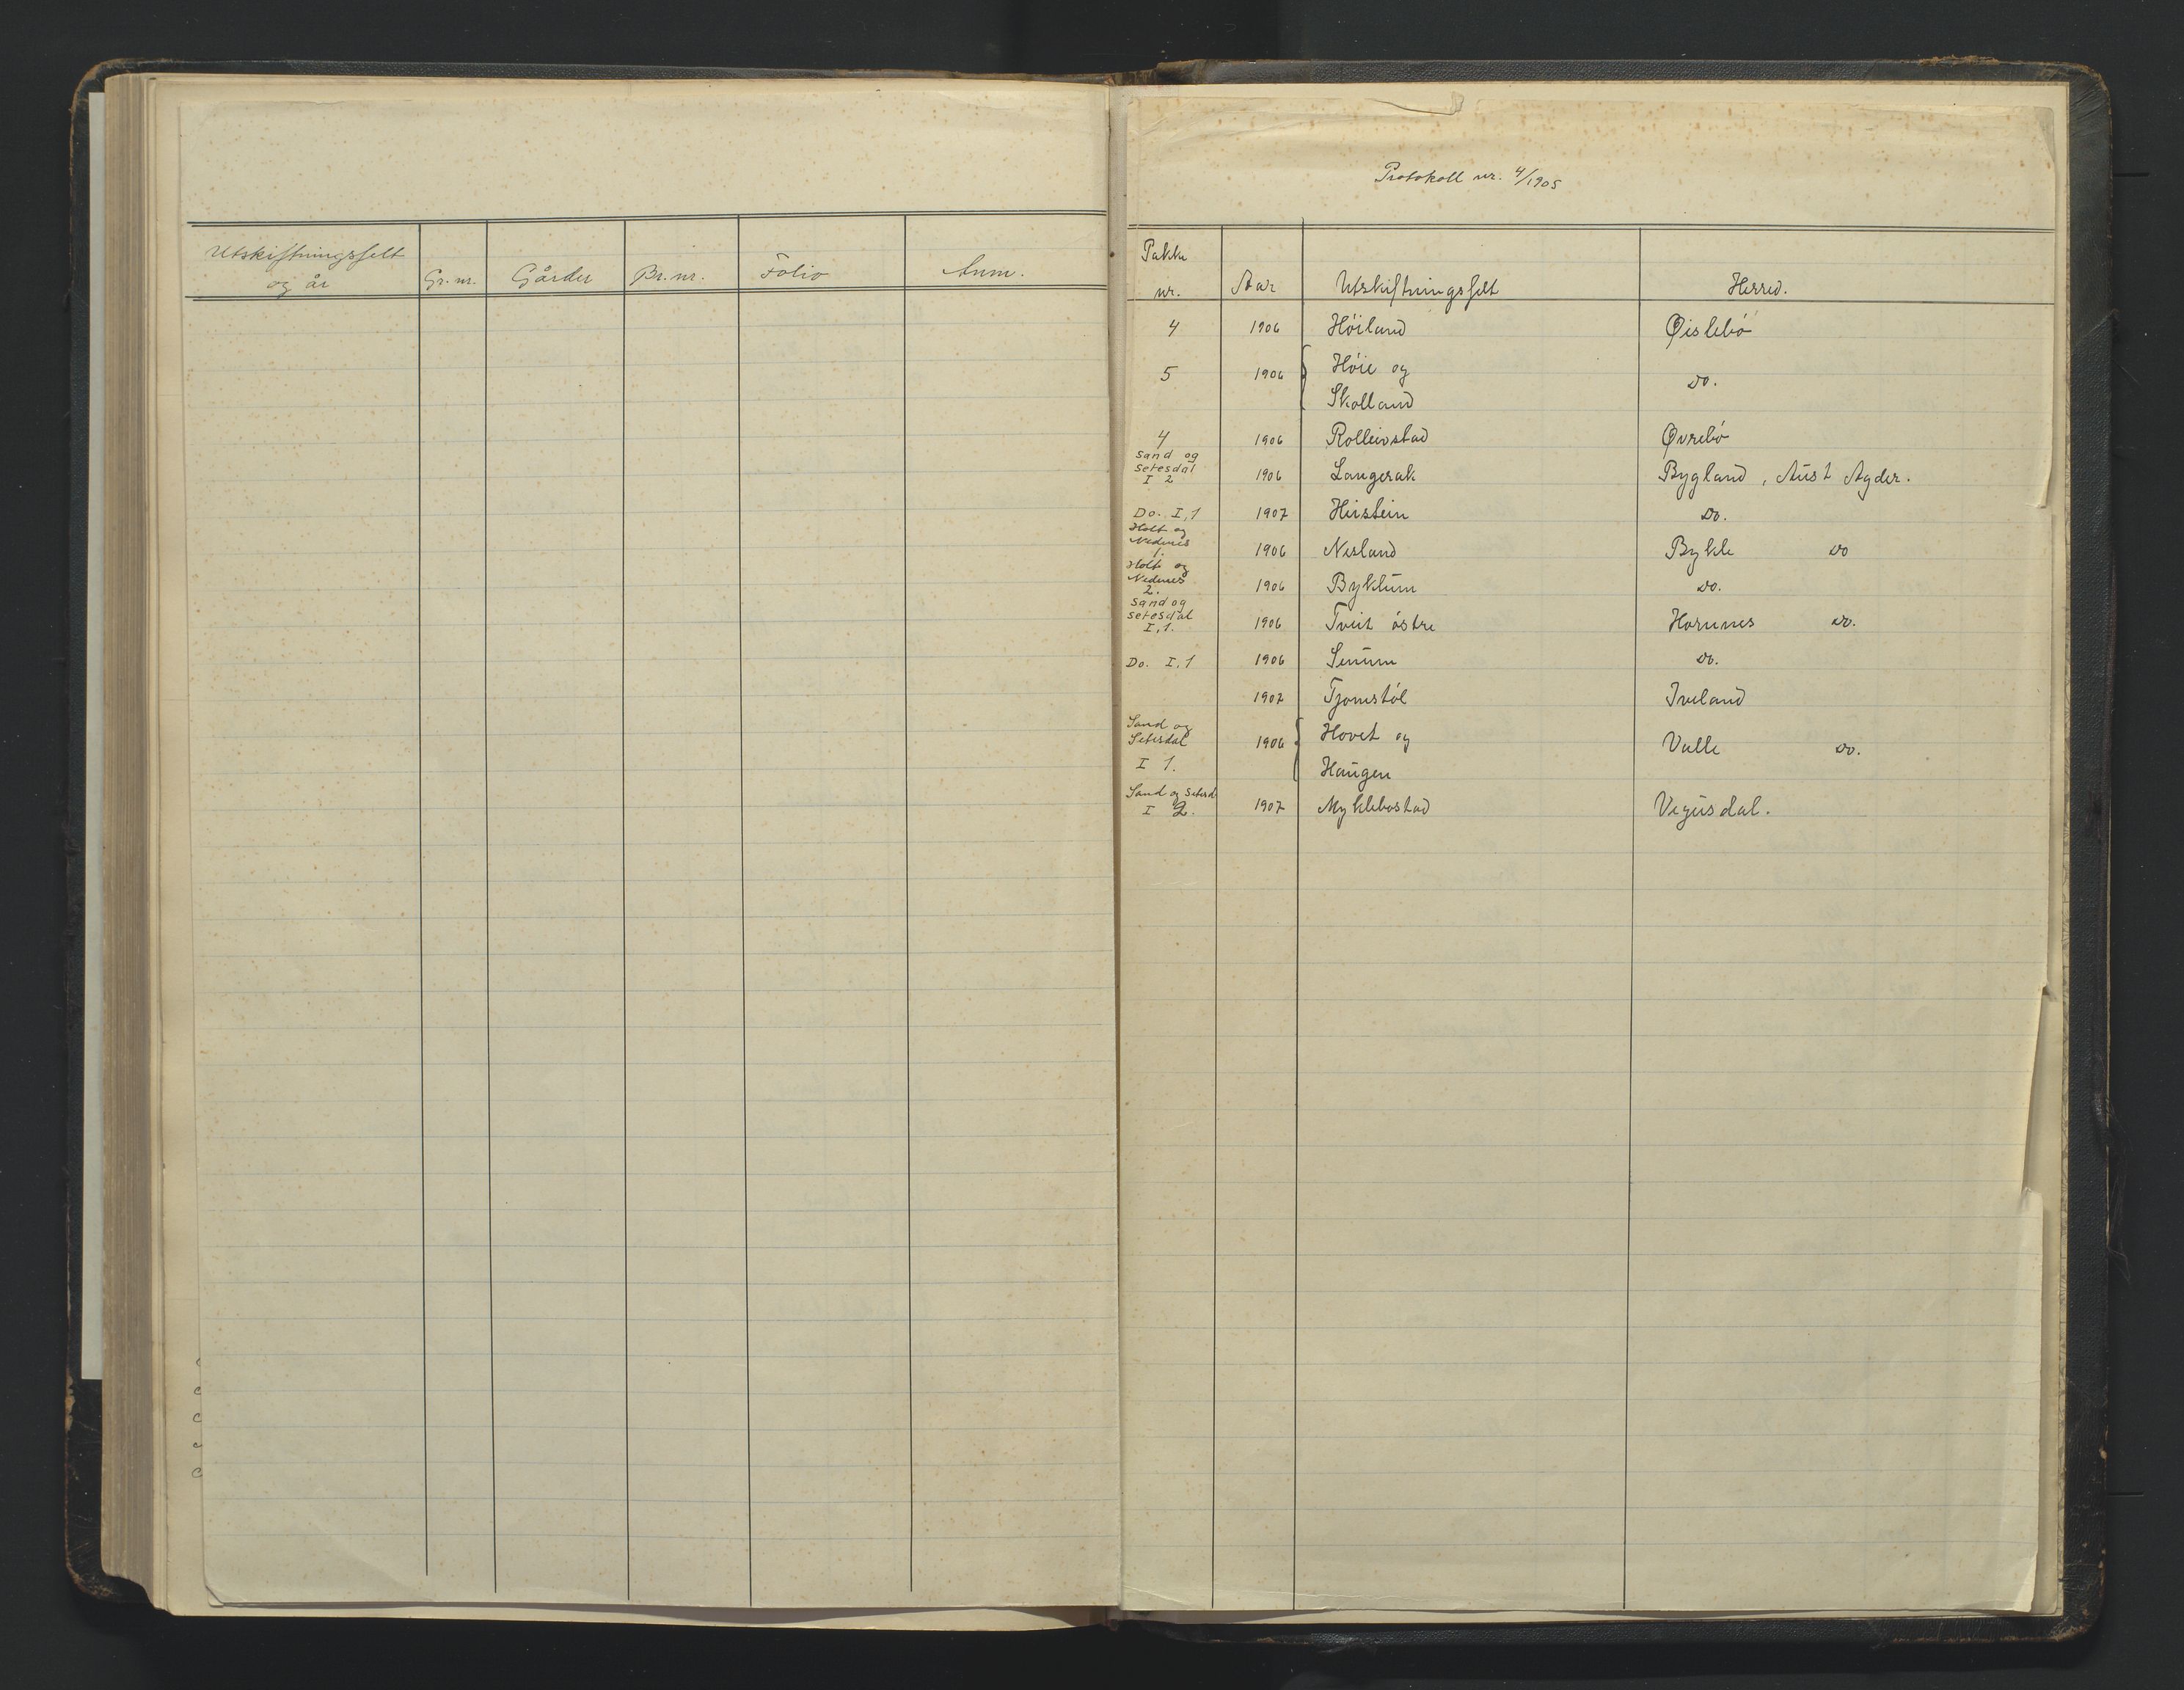 Utskiftningsfelt
og år Gr. nr. Gårder Br. nr. Folio Anm.
Protokoll nr. 4/1905
Pakke
nr. Aar Utskiftningsfelt Herred.
4 1906 Höiland Øislebö
5 1906 Höie og Do.
Skolland
4 1906 Rolleivstad Øvrebö
Sand og
Setesdal
I 2 1906 Langerak Bygland, Aust Agder.
Do. I,1 1907 Heistein Do.
Holt og
Nedenes
1. 1906 Nesland Bykle Do
Holt og
Nedenes
2. 1906 Byklum Do.
Sand og
Setesdal
I,1. 1906 Tveit östre Hornnes Do.
Do. I,1 1906 Senum Do.
1907 Tjomstöl Iveland
Sand og
Setesdal 1906 Hovet og Valle Do.
I 1. Haugen
Sand og Setesd
I 2. 1907 Myklebostad Vegusdal.